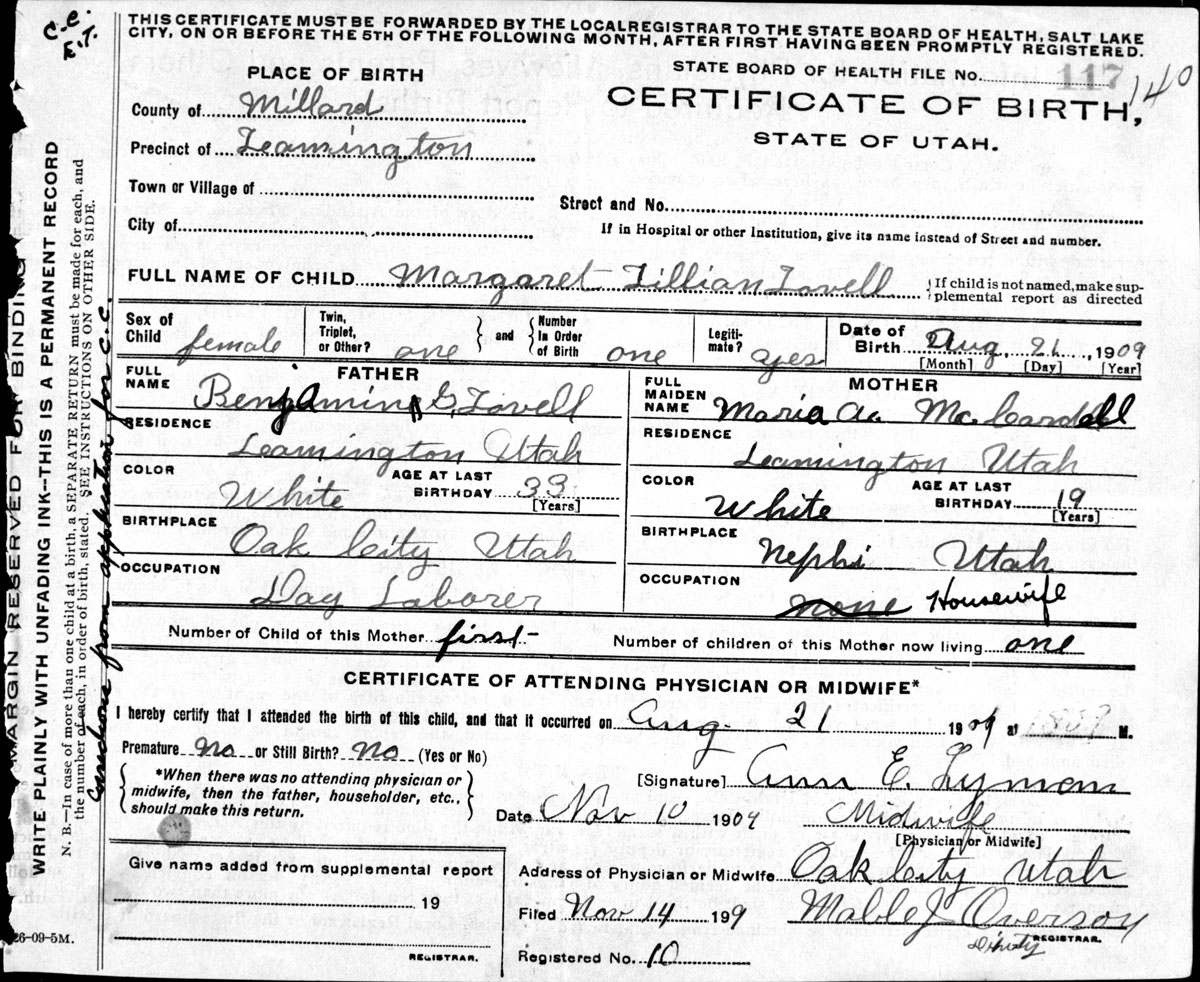 C.C.
E.T.
THIS CERTIFICATE MUST BE FORWARDED BY THE LOCAL REGISTRAR TO THE STATE BOARD OF HEALTH, SALT LAKE
CITY, ON OR BEFORE THE 5TH OF THE FOLLOWING MONTH, AFTER FIRST HAVING BEEN PROMPTLY REGISTERED.
PLACE OF BIRTH
STATE BOARD OF HEALTH FILE No. 117 140
County of Millard
CERTIFICATE OF BIRTH,
STATE OF UTAH.
Precinct of Leamington
Town or Village of
Street and No.
City of
If in Hospital or other Institution, give its name instead of Street and number.
FULL NAME OF CHILD Margaret Lillian Lovell { If child is not named, make sup-
plemental report as directed
Sex of Child female
Twin, Triplet, or Other? one } and { Number in Order of Birth one
Legiti-mate? yes
Date of Birth Aug. 21, 1909
[Month] [Day] [Year]
FATHER
FULL NAME Benjamin G. Lovell
RESIDENCE
Leamington Utah
COLOR White AGE AT LAST BIRTHDAY 33 [Years]
BIRTHPLACE
Oak City Utah
OCCUPATION
Day Laborer
MOTHER
FULL MAIDEN NAME Maria Mc Cardell
RESIDENCE
Leamington Utah
COLOR White AGE AT LAST BIRTHDAY 19 [Years]
BIRTHPLACE
Nephi Utah
OCCUPATION
none Housewife
Number of Child of this Mother first - Number of children of this Mother now living one
CERTIFICATE OF ATTENDING PHYSICIAN OR MIDWIFE*
I hereby certify that I attended the birth of this child, and that it occurred on Aug 21 1909 at M.
Premature No or Still Birth? No (Yes or No)
{ *When there was no attending physician or
midwife, then the father, householder, etc.,
should make this return. }
[Signature] Ann E. Lyman
Date Nov 10 1909 Midwife
[Physician or Midwife]
Give name added from supplemental report
19
REGISTRAR.
Address of Physician or Midwife Oak City Utah
Filed Nov 14 199 Mable J Overson
Deputy REGISTRAR.
Registered No. 10
26-09-5M.
MARGIN RESERVED FOR BINDING
WRITE PLAINLY WITH UNFADING INK--THIS IS A PERMANENT RECORD
N. B.—In case of more than one child at a birth, a SEPARATE RETURN must be made for each, and
the number of each, in order of birth, stated. SEE INSTRUCTIONS ON OTHER SIDE.
from application for C.C.